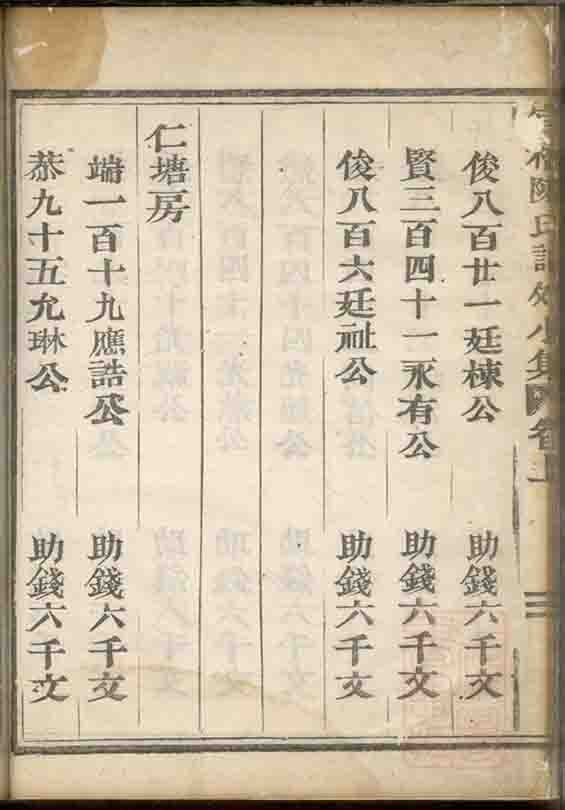 俊八百廿一廷棟公 助錢六千文
賢三百四十一永有公 助錢六千文
俊八百六廷祉公 助錢六千文
仁塘房
端一百十九應誥公 助錢六千文
恭九十五允琳公 助錢六千文